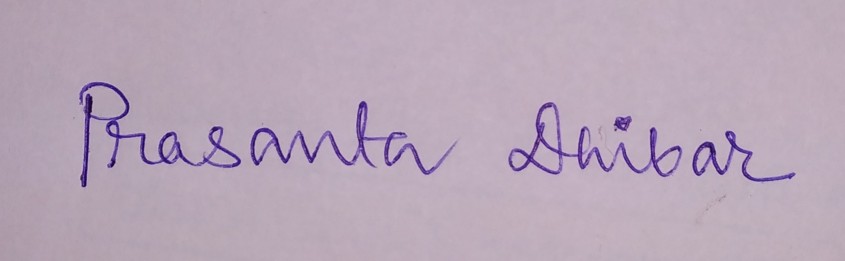 Prasanta Daibar